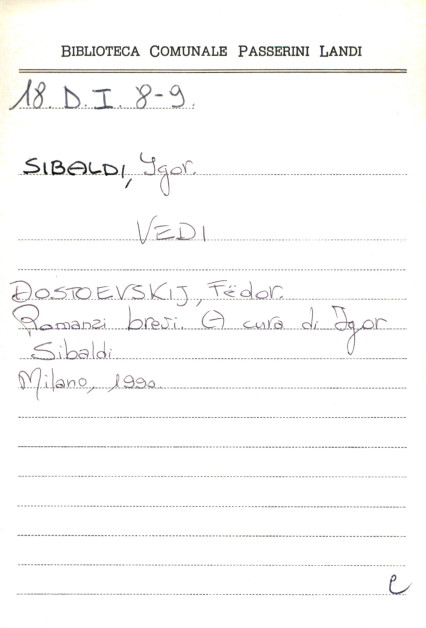 BIBLIOTECA COMUNALE PASSERINI LANDI
18. D. I. 8-9.
SIBALDI, Igor.
VEDI
DOSTOEVSKIJ, Fëdor.
Romanzi brevi. A cura di Igor
Sibaldi
Milano, 1990.
e